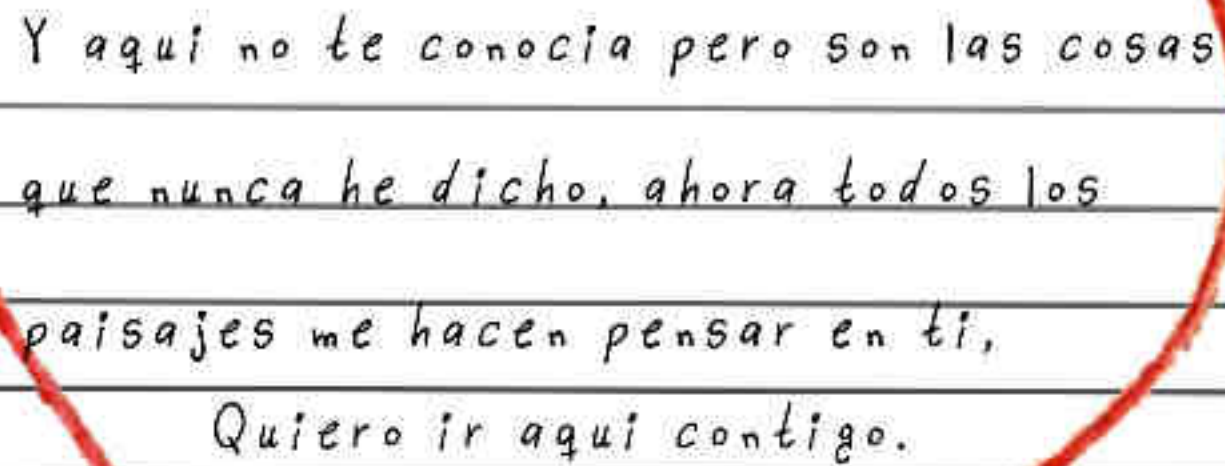 Y aqui no te conocia pero son las cosas
que nunca he dicho, ahora todos los
paisajes me hacen pensar en ti,
Quiero ir aqui contigo.